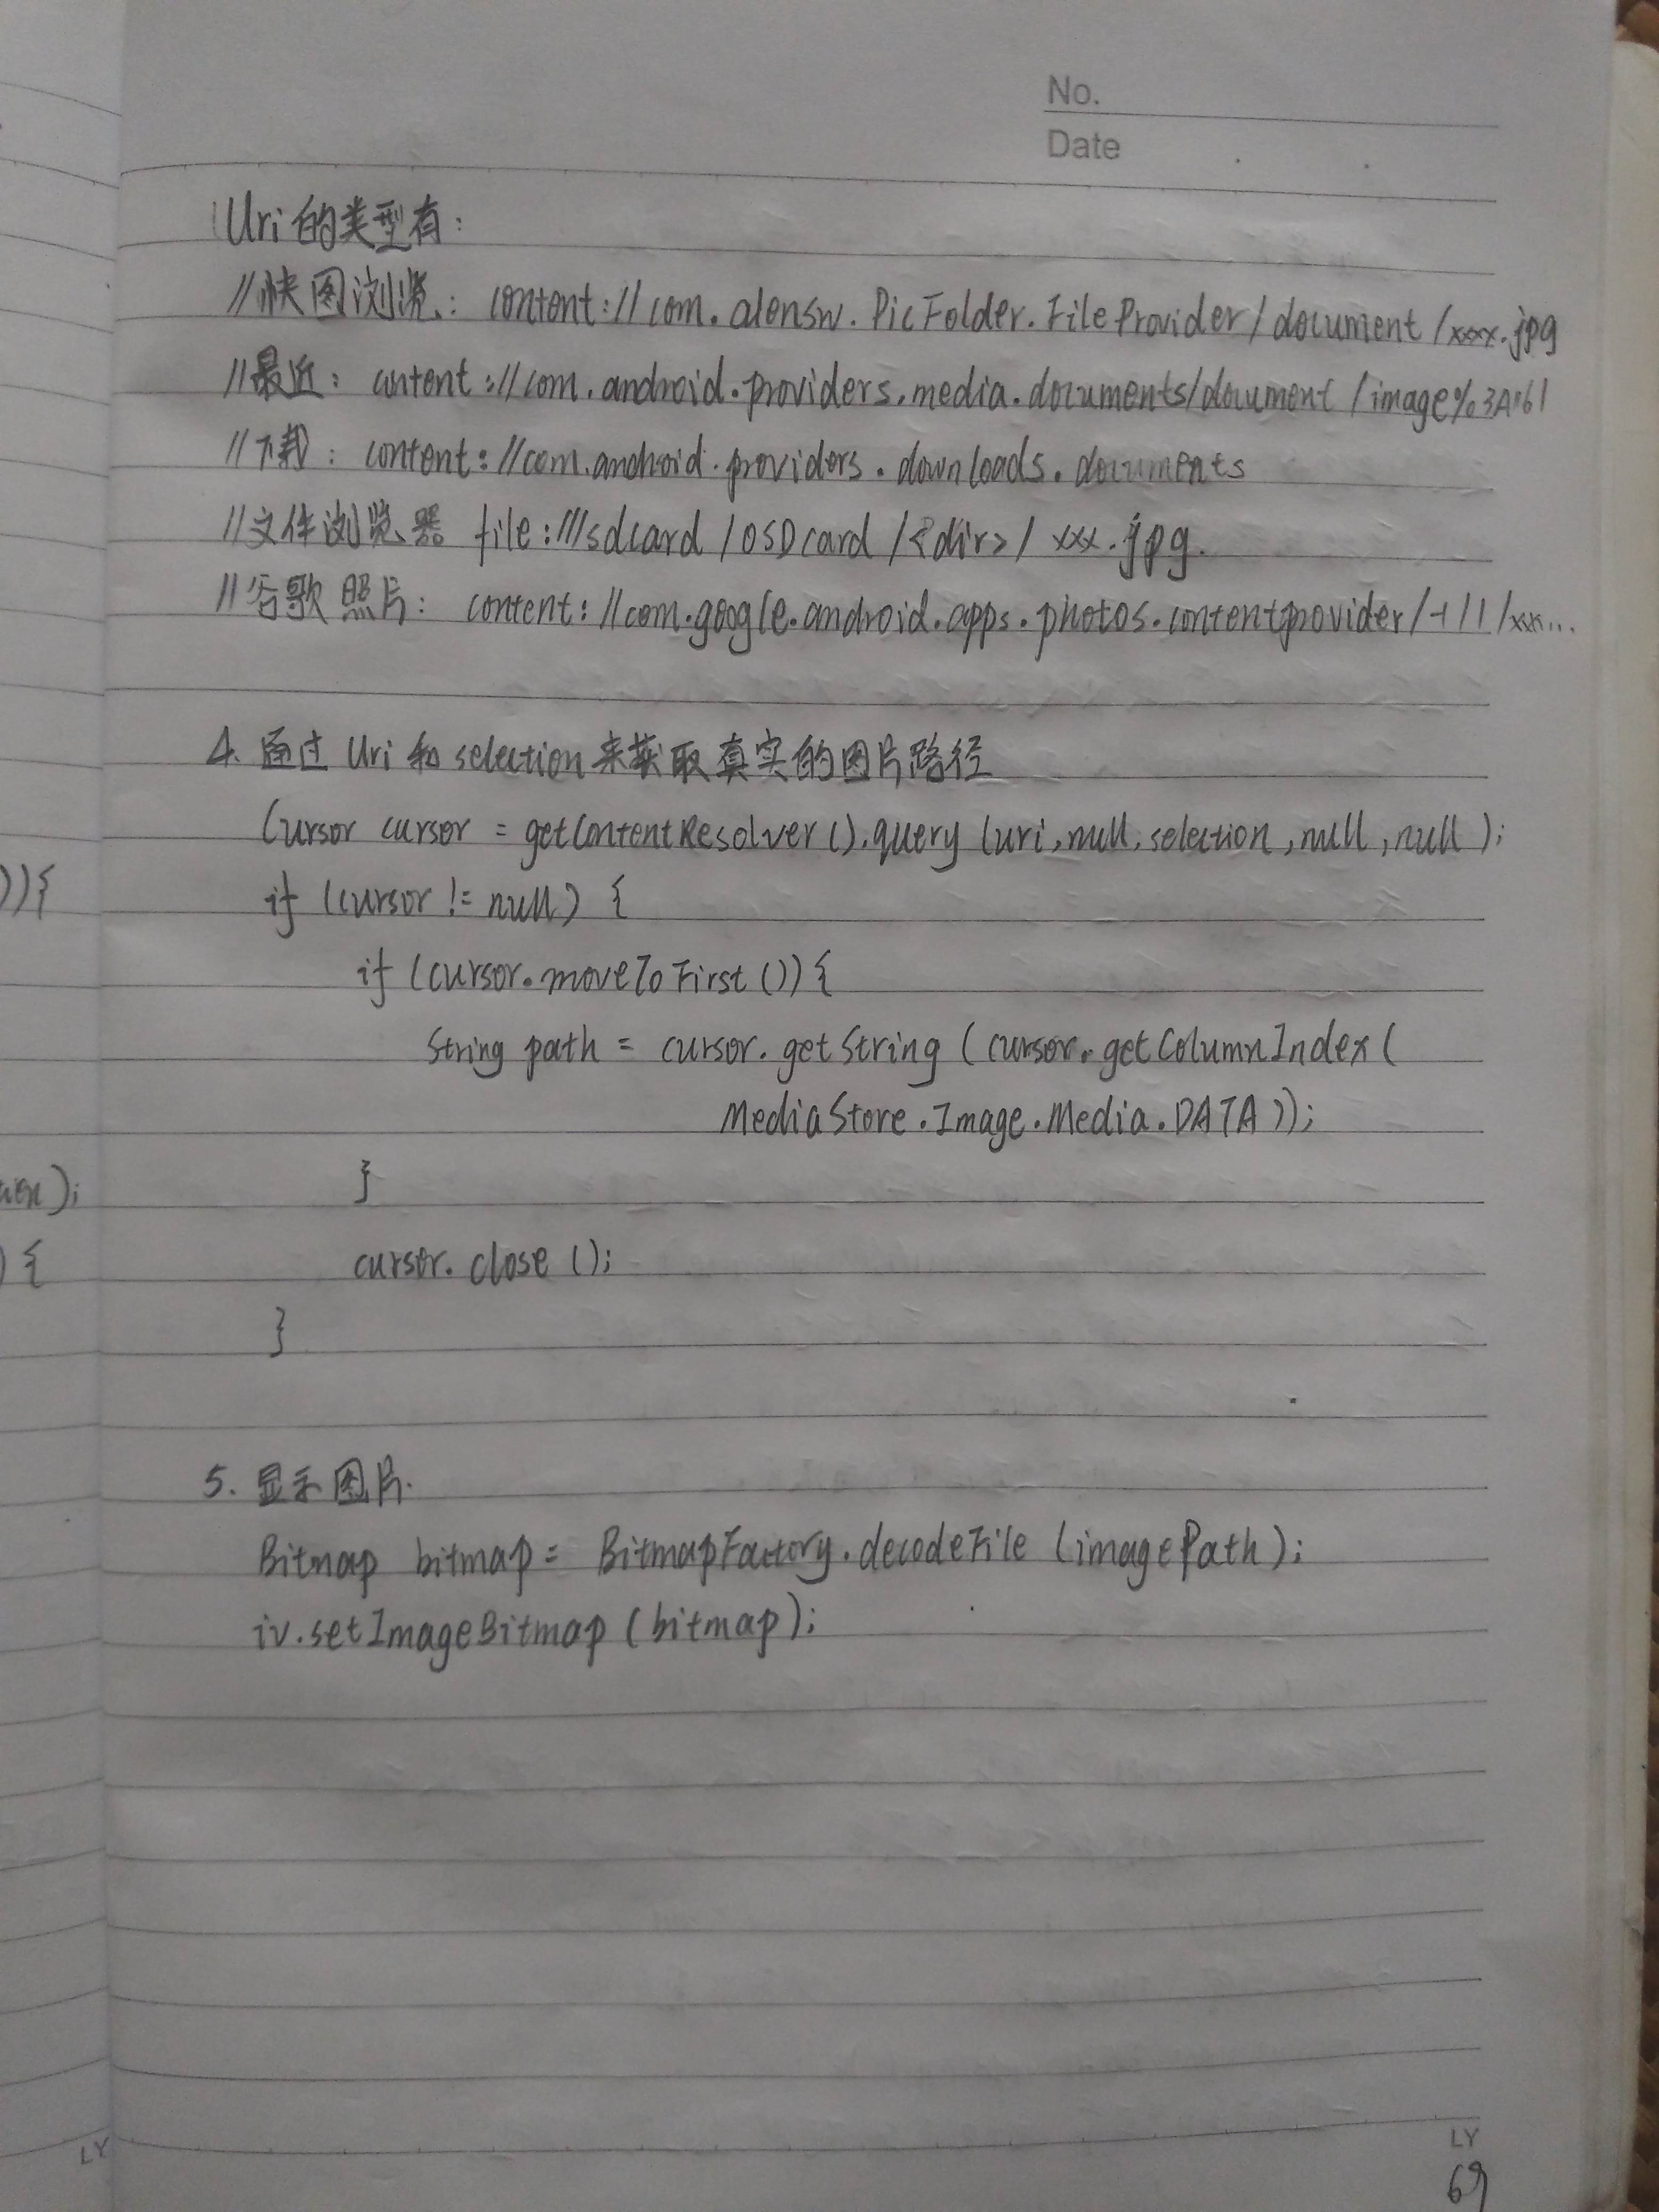 No.
Date
Uri的类型有:
//快图浏览: content://com.alensw.PicFolder.FileProvider/document/xxx.jpg
//最近: content://com.android.providers.media.documents/document/image%3A161
//下载: content://com.android.providers.downloads.documents
//文件浏览器 file:///sdcard/OSDcard/<dir>/xxx.jpg.
//谷歌照片: content://com.google.android.apps.photos.contentprovider/-1/1/xxx...
4. 通过Uri和selection来获取真实的图片路径
Cursor cursor = getContentResolver().query(uri,null,selection,null,null);
)){
if (cursor != null) {
if (cursor.moveToFirst()){
String path = cursor.getString(cursor.getColumnIndex(
MediaStore.Image.Media.DATA));
}
);
cursor.close();
) {
}
5. 显示图片.
Bitmap bitmap = BitmapFactory.decodeFile(imagePath);
iv.setImageBitmap(bitmap);
LY
LY
69